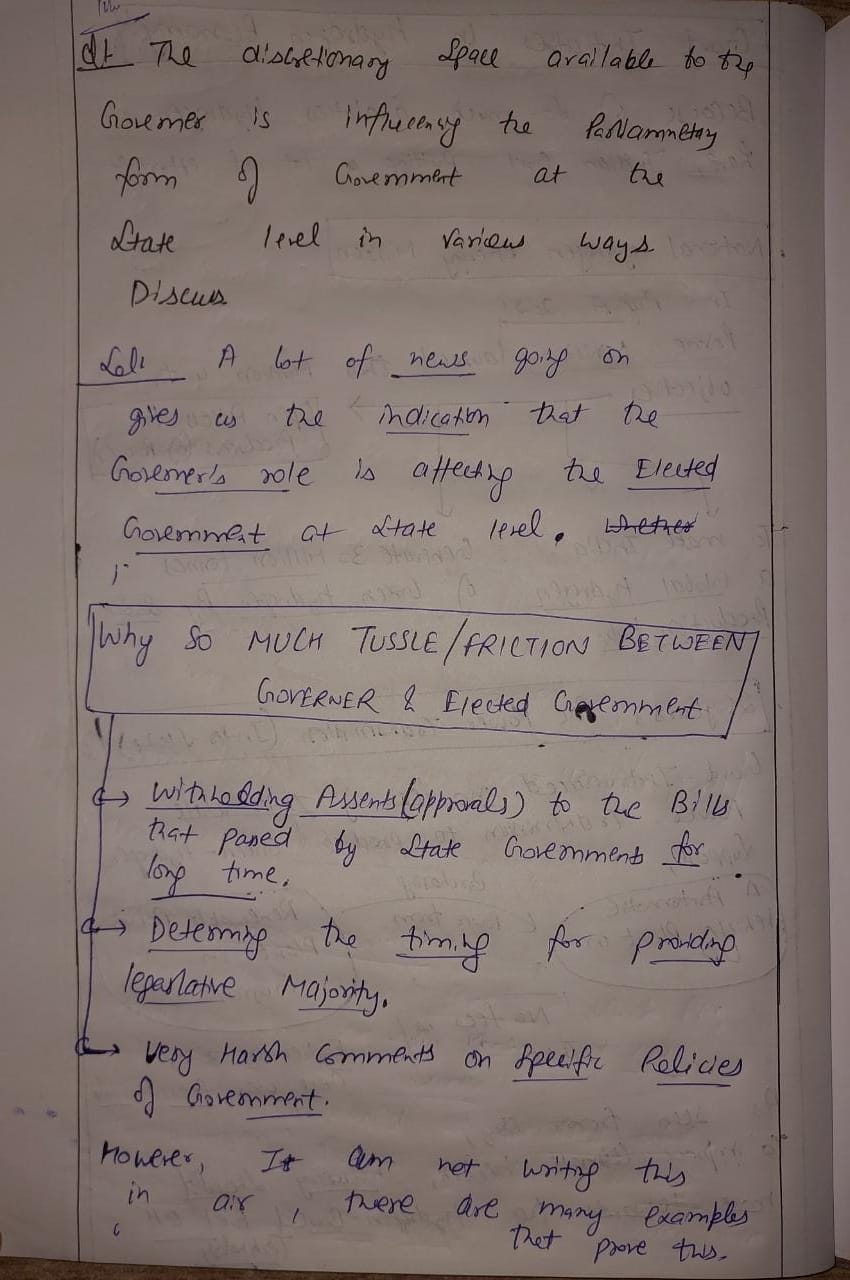 Q1 The discretionary Space available to the
Governer is influcencing the Parlamnetary
form of Government at the
State level in various ways.
Discuss
Sol: A lot of news going on
gives us the indication that the
Governer's role is affecting the Elected
Government at State level. whether
Why SO MUCH TUSSLE/FRICTION BETWEEN
GOVERNER & Elected Government
→ Withholding Assents (approvals) to the Bills
that passed by State Governments for
long time.
→ Determing the timing for providing
legaslative Majority.
→ Very Harsh Comments on Specific Policies
of Government.
However, I am not writing this
in air, there are many examples
that prove this.